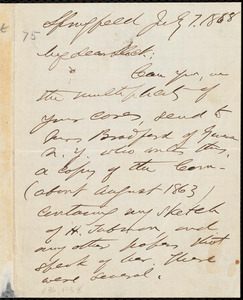 75
Springfield July 7. 1868
My dear Slack:
Can you, in
the multiplicity of
your cares, send to
Mrs Bradford of Geneva
N. Y. who writes this,
a copy of the Com.
(about August 1863)
containing my sketch
of H. Tubman, and
any other papers that
speak of her. There
were several.